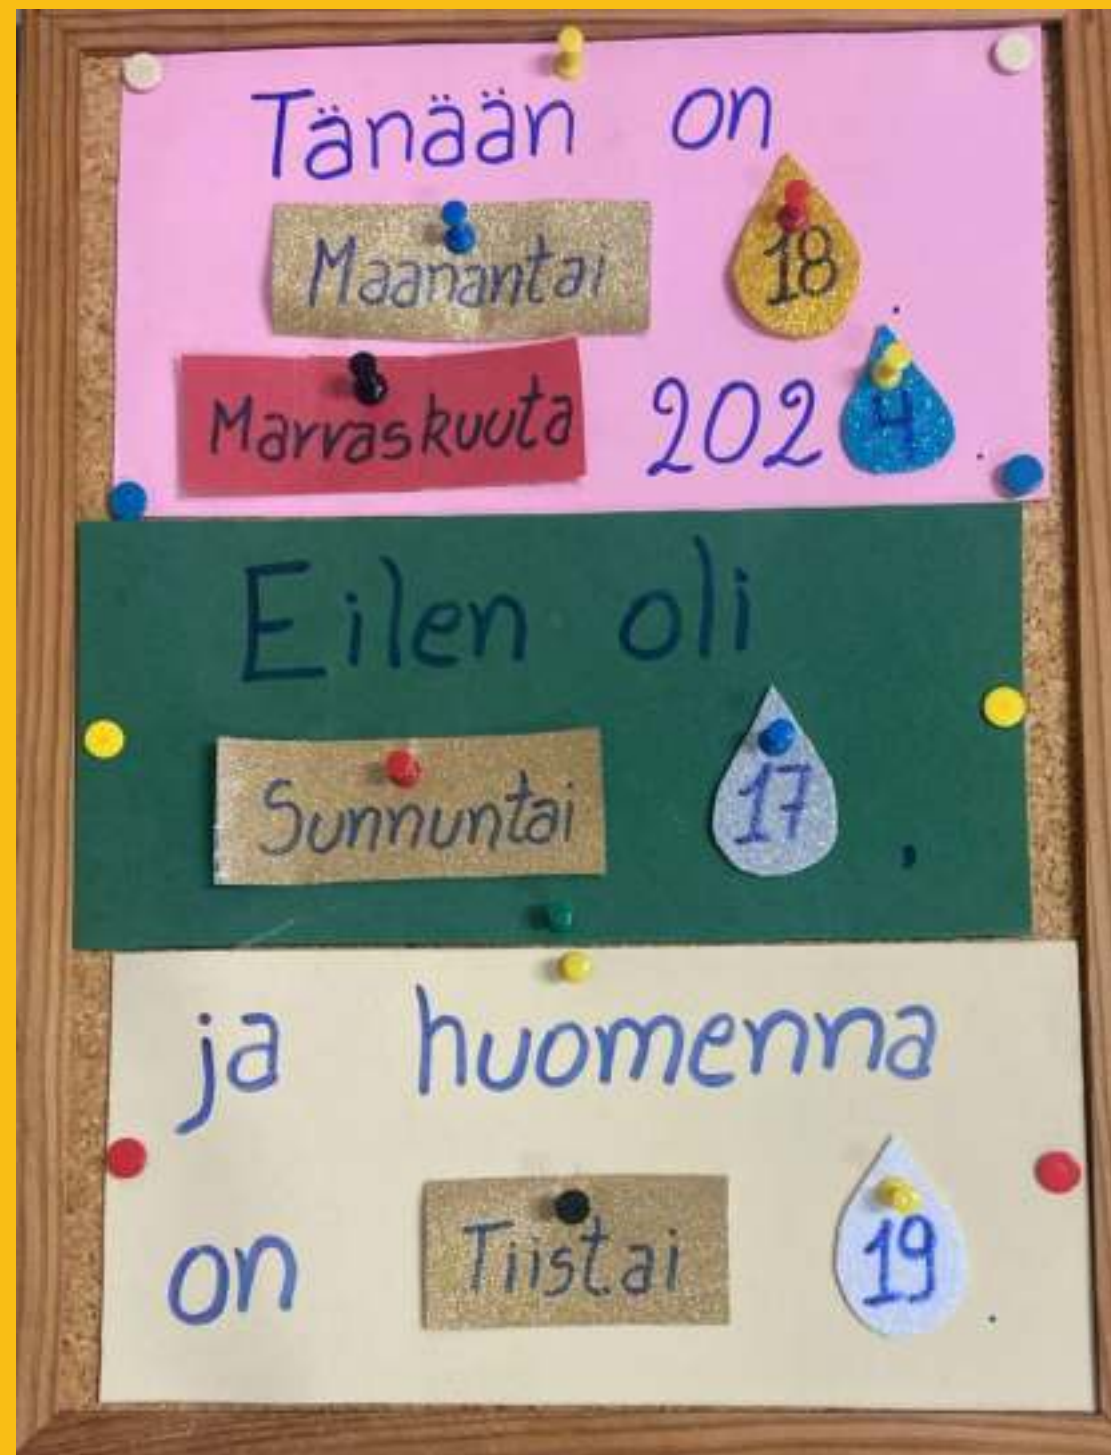 Tänään on
Maanantai 18.
Marraskuuta 2024.
Eilen oli
Sunnuntai 17.
ja huomenna
on Tiistai 19.